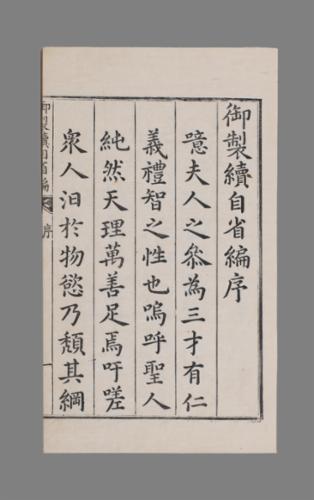 御製續自省編序
噫夫人之參為三才有仁
義禮智之性也嗚呼聖人
純然天理萬善足焉吁嗟
衆人汨於物慾乃頹其綱
御製續自省編
序
一